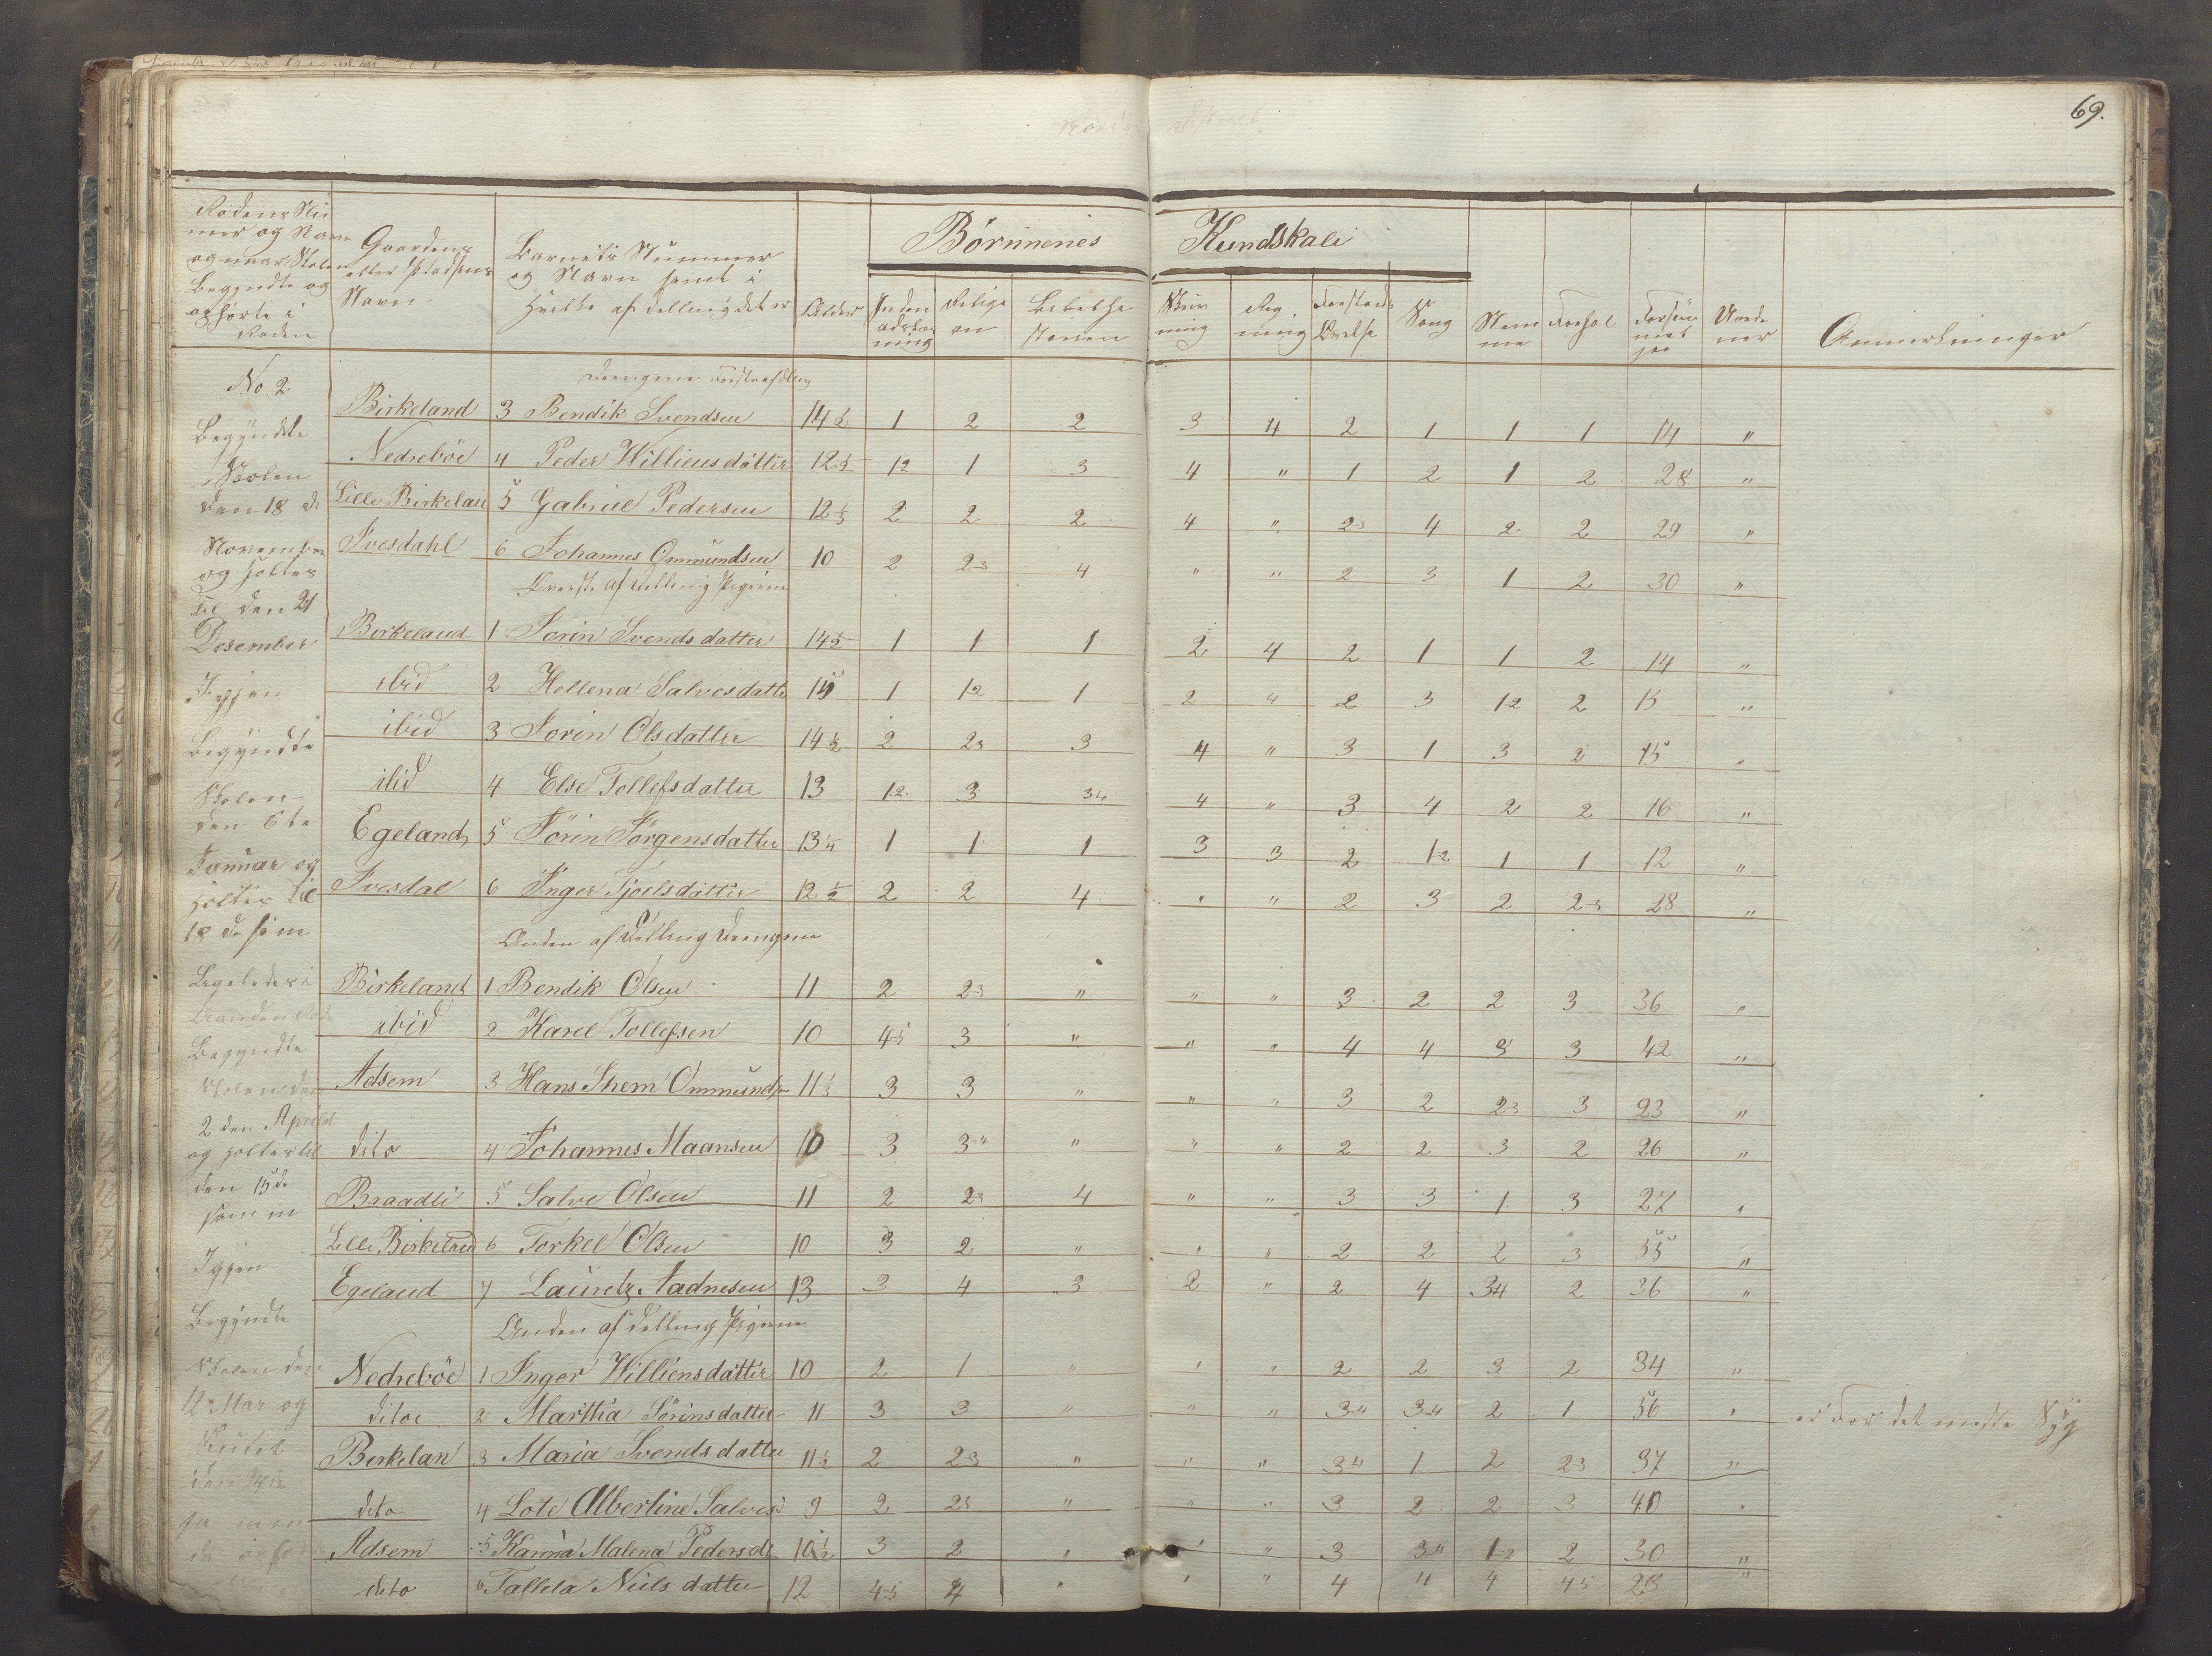 69.
Börnnenes Kundskab
Rodens Nu
mer og Navn
og naar Skolen
Begyndte og
ophörte i
Roden
Gaardens
eller Pladsens
Navn
Barnets Nummer
og Navn samt i
Hvilke afdelling det er
Alder
Inden
adskog
ning
Religi
on
Skriv
ning
Reg
ning
Sang
Nem
me
Forhol
Forsöm
met
Uorde
ner
Anmerkninger
No 2.
Begyndte
Skolen
den 18 de
November
og holtes
til den 21
Desember
Igjen
Begyndte
Skolen
den 6te
Januar og
holtes til
18 de samme
Ligeledes i
Begyndte
Skolen den
2 den April
og holtes til
den 15 de
samme
Igjen
Begyndte
Skolen den
12 Mar og
Drengene Förste afdelling
Birkeland 3 Bendik Svendsen 14 1/2 1 2 2 3 4 2 1 1 1 14 "
Nedreböe 4 Peder Williensdatter 12 1/2 12 1 3 4 " 1 2 1 2 28 "
Lille Birkelan 5 Gabriel Pedersen 12 1/3 2 2 2 4 " 23 4 2 2 29 "
Ivesdahl 6 Johannes Ommundsen 10 2 23 4 " " 2 3 1 2 30 "
Överste afdelling Pigerne
Birkeland 1 Sorin Svendsdatter 14 1/2 1 1 1 2 4 2 1 1 2 14 "
ibid 2 Hellena Salvesdatter 15 1 12 1 2 " 2 3 12 2 15 "
ibid 3 Sorin Olsdatter 14 1/2 2 23 3 4 " 3 1 3 2 15 "
ibid 4 Else Tollefsdatter 13 12 3 34 4 " 3 4 2 2 16 "
Egeland 5 Sörin Jörgensdatter 13 1/4 1 1 1 3 3 2 12 1 1 12 "
Ivesdal 6 Inger Tjoelsdatter 12 1/2 2 2 4 " " 2 3 2 23 28 "
Anden afdelling Drengene
Birkeland 1 Bendik Olsen 11 2 23 " " " 3 2 2 3 36 "
ibid 2 Karel Tollefsen 10 45 3 " " " 4 4 3 3 42 "
Adsem 3 Hans Shem Ommunds 11 1/3 3 3 " " " 3 2 23 3 23 "
dito 4 Johannes Maansen 10 3 34 " " " 2 2 3 2 26 "
Braadli 5 Salve Olsen 11 2 23 4 " " 3 3 1 3 27 "
Lille Birkeland 6 Torkel Olsen 10 3 2 " " " 2 2 2 3 35 "
Egeland 7 Lauretz Aadnesen 13 3 4 3 2 " 2 4 34 2 36 "
Anden afdelling Pigerne
Nedreböe 1 Inger Williensdatter 10 2 1 " " " 2 2 3 2 34 "
ditoe 2 Martha Sörinsdatter 11 3 3 " " " 34 34 2 1 56 " er For det meste Syg
Berkelan 3 Maria Svendsdatter 11 1/2 2 23 " " " 34 1 2 23 37 "
dito 4 Lote Albertine Salves 9 2 23 " " " 3 2 2 3 40 "
Adsem 5 Karina Malena Pedersd 10 1/2 3 2 " " " 3 34 12 2 30 "
dito 6 Tallela Niels datter 12 45 4 " " " 4 4 4 45 28 "